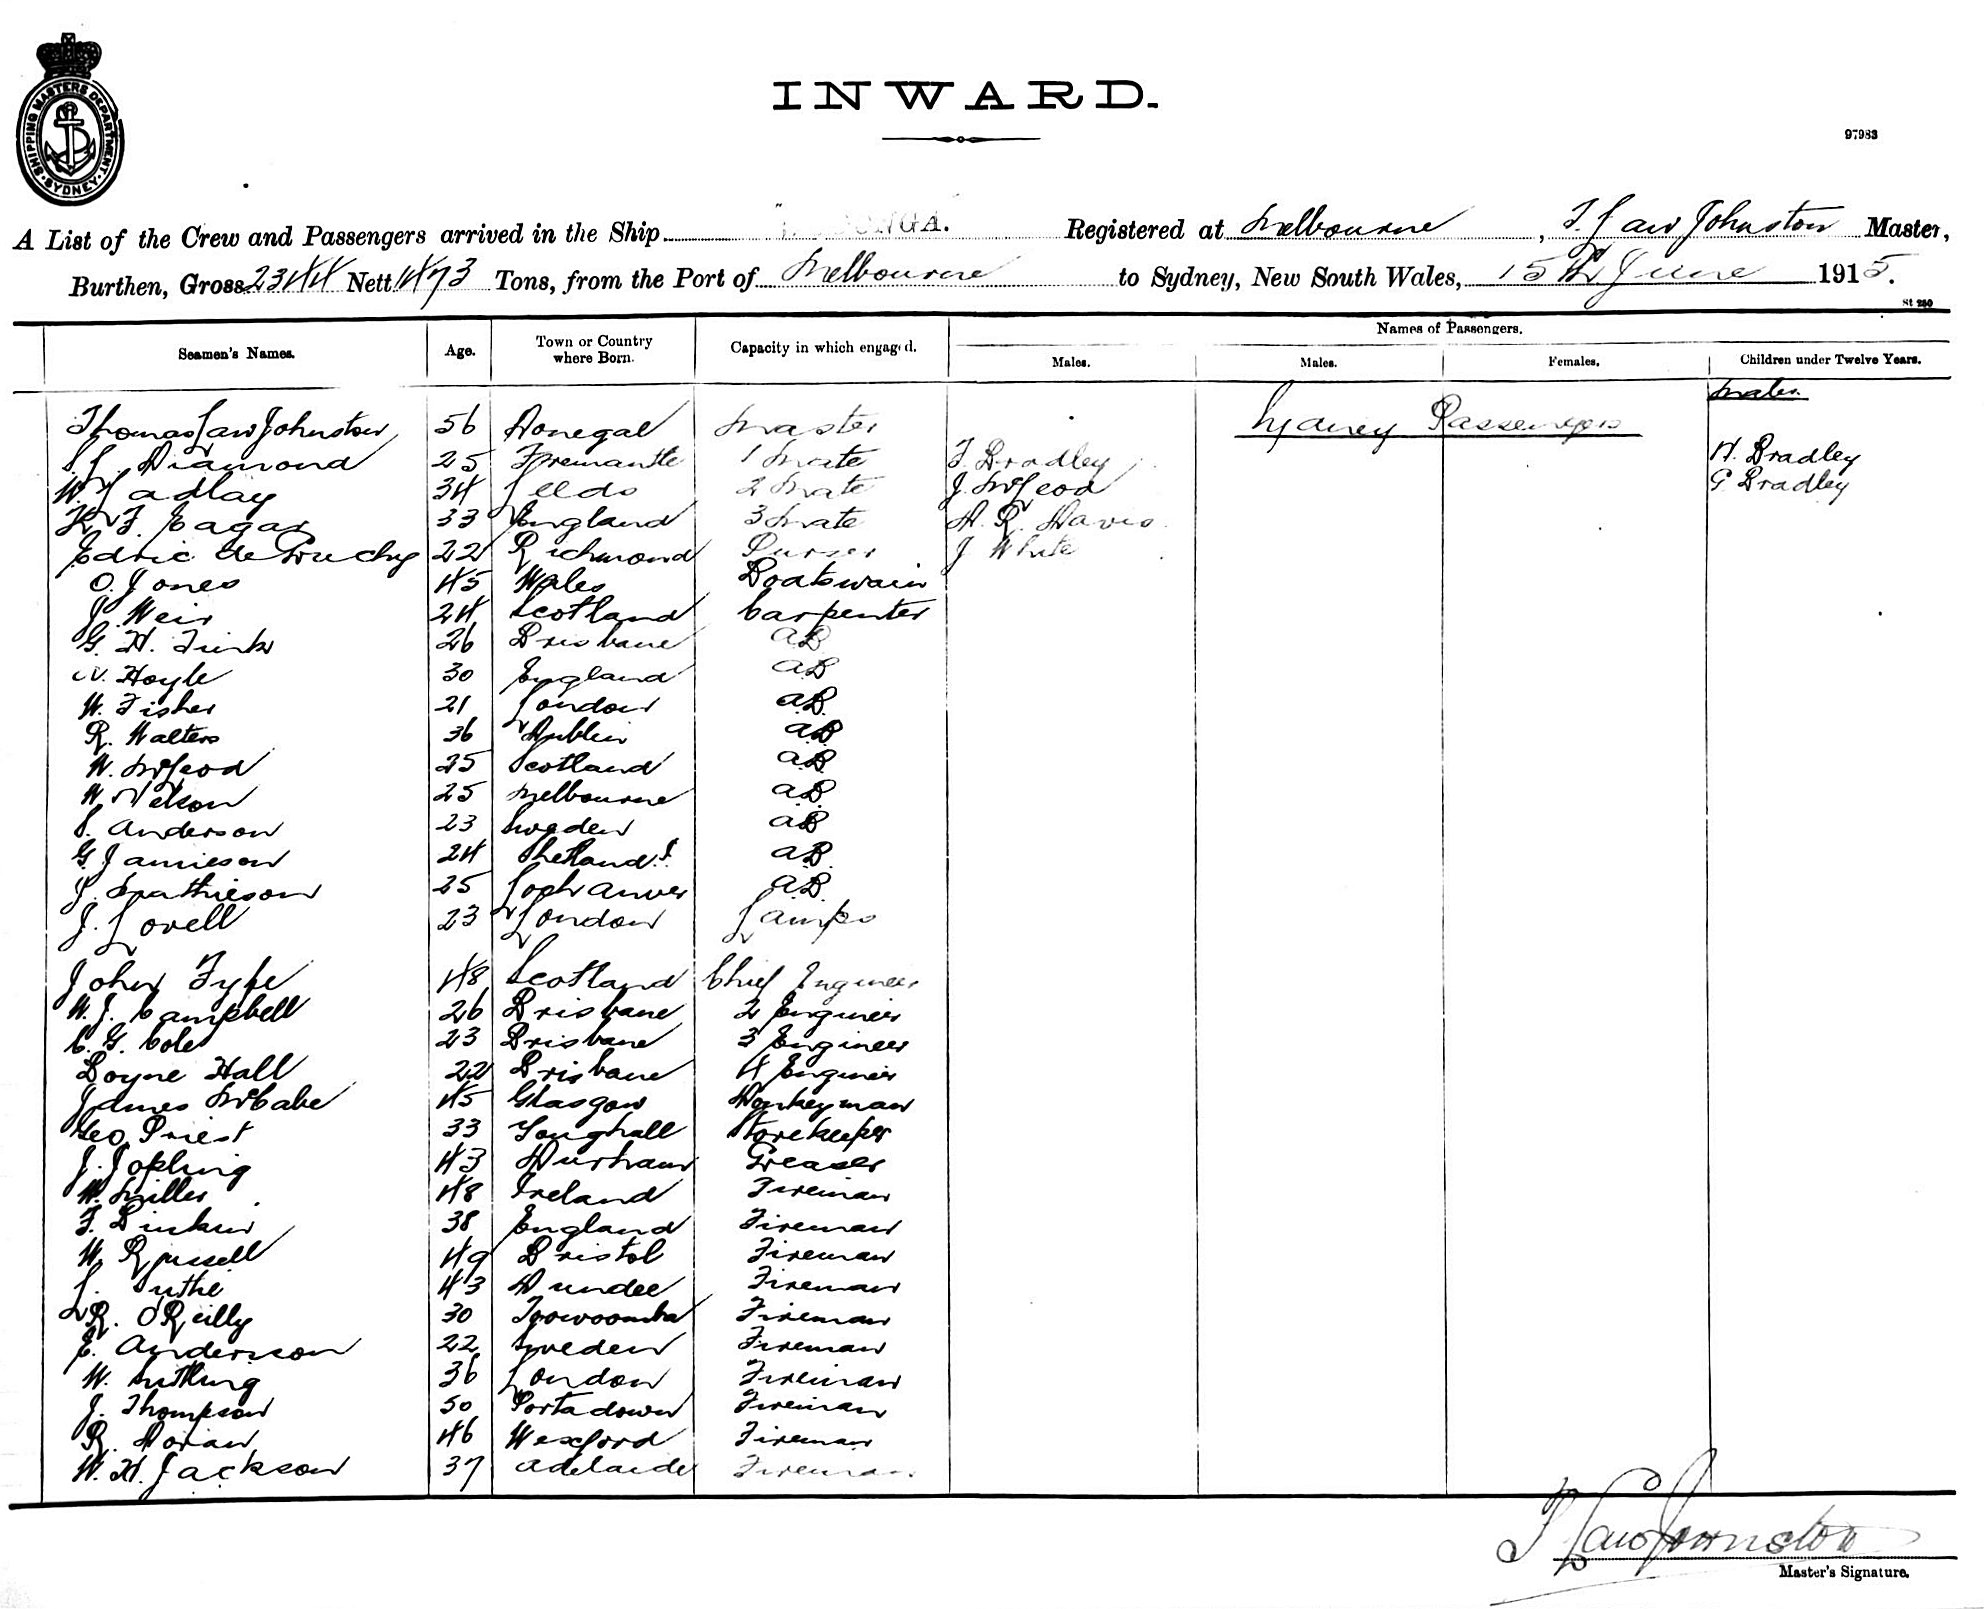 SHIPPING MASTERS DEPARTMENT. SYDNEY.
INWARD.
97983
A List of the Crew and Passengers arrived in the Ship Registered at Melbourne, T. Law Johnston Master,
Burthen, Gross 2344 Nett 1473 Tons, from the Port of Melbourne to Sydney, New South Wales, 15th June 1915.
St 280
Names of Passengers.
Seamen's Names. Age. Town or Country where Born. Capacity in which engaged. Males. Males. Females. Children under Twelve Years.
Males
Thomas Law Johnston 56 Donegal Master Sydney Passengers
Diamond 25 Fremantle 1 Mate F. Bradley H. Bradley
W. Ladlay 34 Leeds 2 Mate J. McLeod G Bradley
K. F. Eagar 33 England 3 Mate H. R. Davis
Edric de Gruchy 22 Richmond Purser J White
O. Jones 45 Wales Boatswain
J. Weir 24 Scotland Carpenter
G. H. Fink 26 Brisbane AB
Hoyle 30 England AB
W. Fisher 21 London AB
R. Walters 36 Dublin AB
W. McLeod 25 Scotland AB
W. Nelson 25 Melbourne AB
S. Anderson 23 Sweden AB
G Jamieson 24 Shetland I. AB
J. Mathieson 25 AB
J. Lovell 23 London Lamps
John Fyfe 48 Scotland Chief Engineer
W. J. Campbell 26 Brisbane 2 Engineer
C. G. Cole 23 Brisbane 3 Engineer
Boyne Hall 22 Brisbane 4 Engineer
James McCabe 45 Glasgow Donkeyman
Geo Priest 33 Youghall Storekeeper
J. Jopling 43 Durham Greaser
W. Miller 48 Ireland Fireman
F. 38 England Fireman
W. Russell 49 Bristol Fireman
L. 43 Dundee Fireman
R. O'Reilly 30 Toowoomba Fireman
E. Andersson 22 Sweden Fireman
W. 36 London Fireman
J. Thompson 50 Portadown Fireman
R. Doran 46 Wexford Fireman
W. H. Jackson 37 Adelaide Fireman
T Law Johnston
Master's Signature.